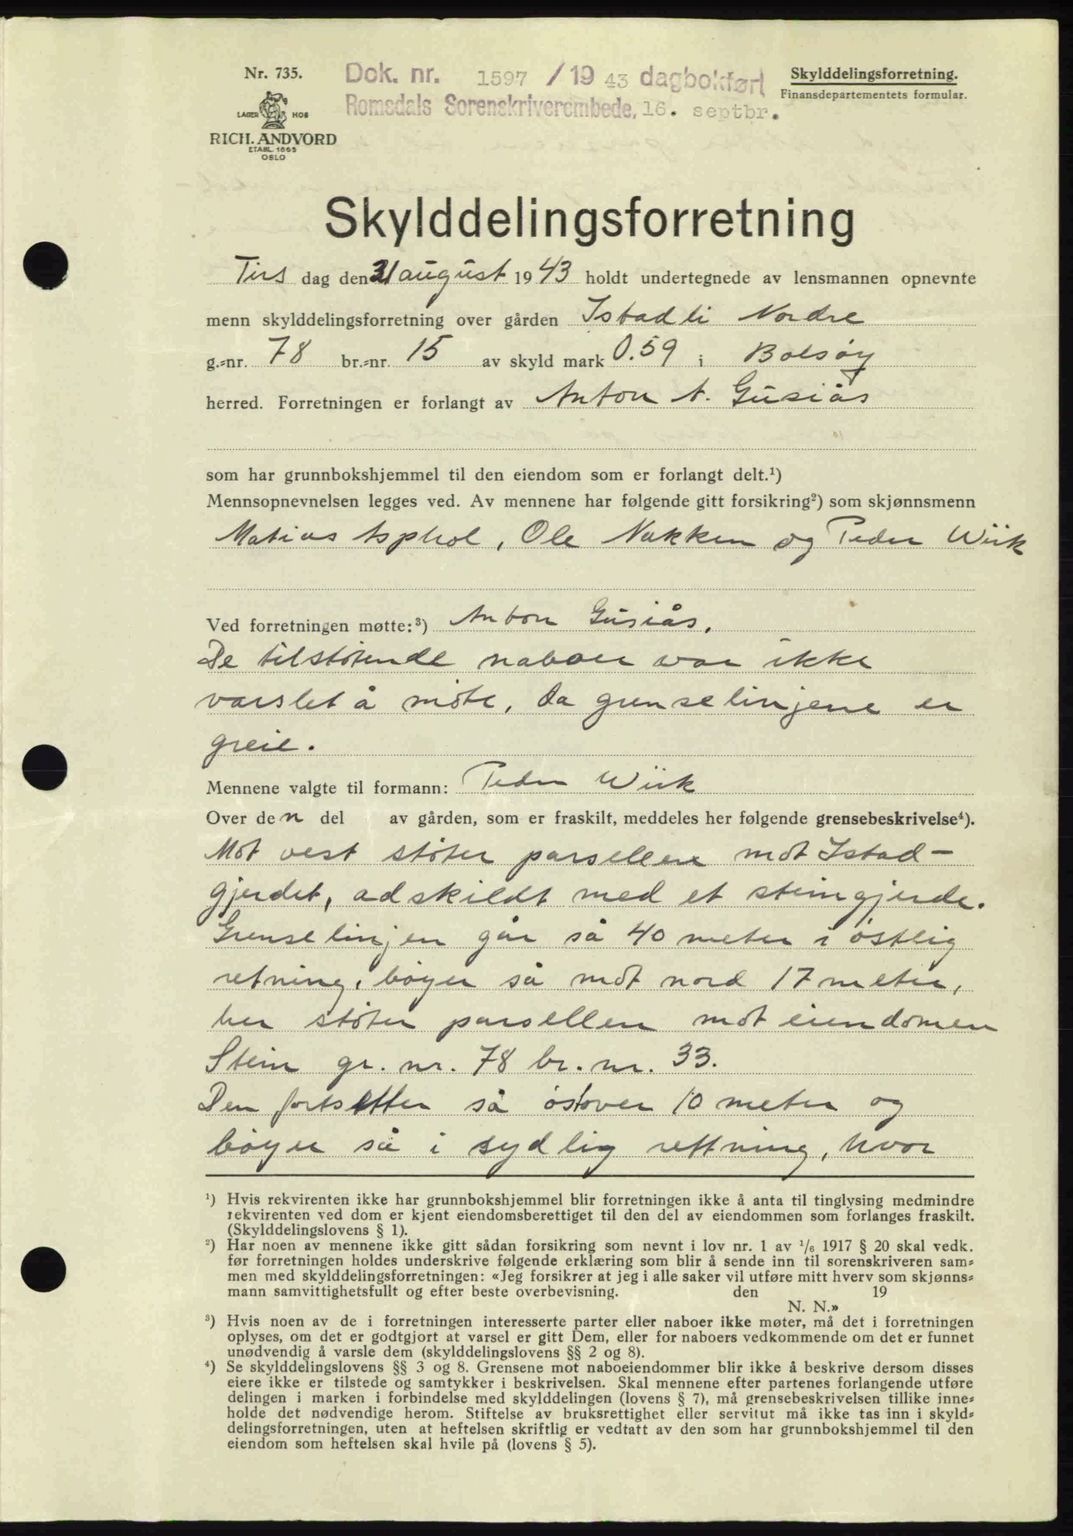 Nr. 735.
LAGER HOS
RICH. ANDVORD
ETABL. 1865
OSLO
Dok. nr. 1597 / 19 43 dagbokført
Romsdals Sorenskriverembede, 16. septbr.
Skylddelingsforretning.
Finansdepartementets formular.
Skylddelingsforretning
Tirs dag den 31 august 19 43 holdt undertegnede av lensmannen opnevnte
menn skylddelingsforretning over gården Istadli Nordre
g.-nr. 78 br.-nr. 15 av skyld mark 0.59 i Bolsøy
herred. Forretningen er forlangt av Anton A. Gusiås
som har grunnbokshjemmel til den eiendom som er forlangt delt.¹)
Mennsopnevnelsen legges ved. Av mennene har følgende gitt forsikring²) som skjønnsmenn
Matias Asphol, Ole Nakken og Peder Wiik
Ved forretningen møtte:³) Anton Gusiås.
De tilstøtende naboer var ikke
varslet å møte, da grenselinjene er
greie.
Mennene valgte til formann: Peder Wiik
Over de n del av gården, som er fraskilt, meddeles her følgende grensebeskrivelse⁴).
Mot vest støter parsellen mot Istad-
gjerdet, adskildt med et steingjerde.
Grenselinjen går så 40 meter i østlig
retning, bøyer så mot nord 17 meter,
her støter parsellen mot eiendomen
Stein gr. nr. 78 br. nr. 33.
Den fortsetter så østover 10 meter og
bøyer så i sydlig rettning, hvor
¹) Hvis rekvirenten ikke har grunnbokshjemmel blir forretningen ikke å anta til tinglysing medmindre
rekvirenten ved dom er kjent eiendomsberettiget til den del av eiendommen som forlanges fraskilt.
(Skylddelingslovens § 1).
²) Har noen av mennene ikke gitt sådan forsikring som nevnt i lov nr. 1 av ¹/₆ 1917 § 20 skal vedk.
før forretningen holdes underskrive følgende erklæring som blir å sende inn til sorenskriveren sam-
men med skylddelingsforretningen: «Jeg forsikrer at jeg i alle saker vil utføre mitt hverv som skjønns-
mann samvittighetsfullt og efter beste overbevisning. den 19
N. N.»
³) Hvis noen av de i forretningen interesserte parter eller naboer ikke møter, må det i forretningen
oplyses, om det er godtgjort at varsel er gitt Dem, eller for naboers vedkommende om det er funnet
unødvendig å varsle dem (skylddelingslovens §§ 2 og 8).
⁴) Se skylddelingslovens §§ 3 og 8. Grensene mot naboeiendommer blir ikke å beskrive dersom disses
eiere ikke er tilstede og samtykker i beskrivelsen. Skal mennene efter partenes forlangende utføre
delingen i marken i forbindelse med skylddelingen (lovens § 7), må grensebeskrivelsen tillike inne-
holde det nødvendige herom. Stiftelse av bruksrettighet eller servitut må ikke tas inn i skyld-
delingsforretningen, uten at heftelsen skriftlig er vedtatt av den som har grunnbokshjemmel til den
eiendom som heftelsen skal hvile på (lovens § 5).